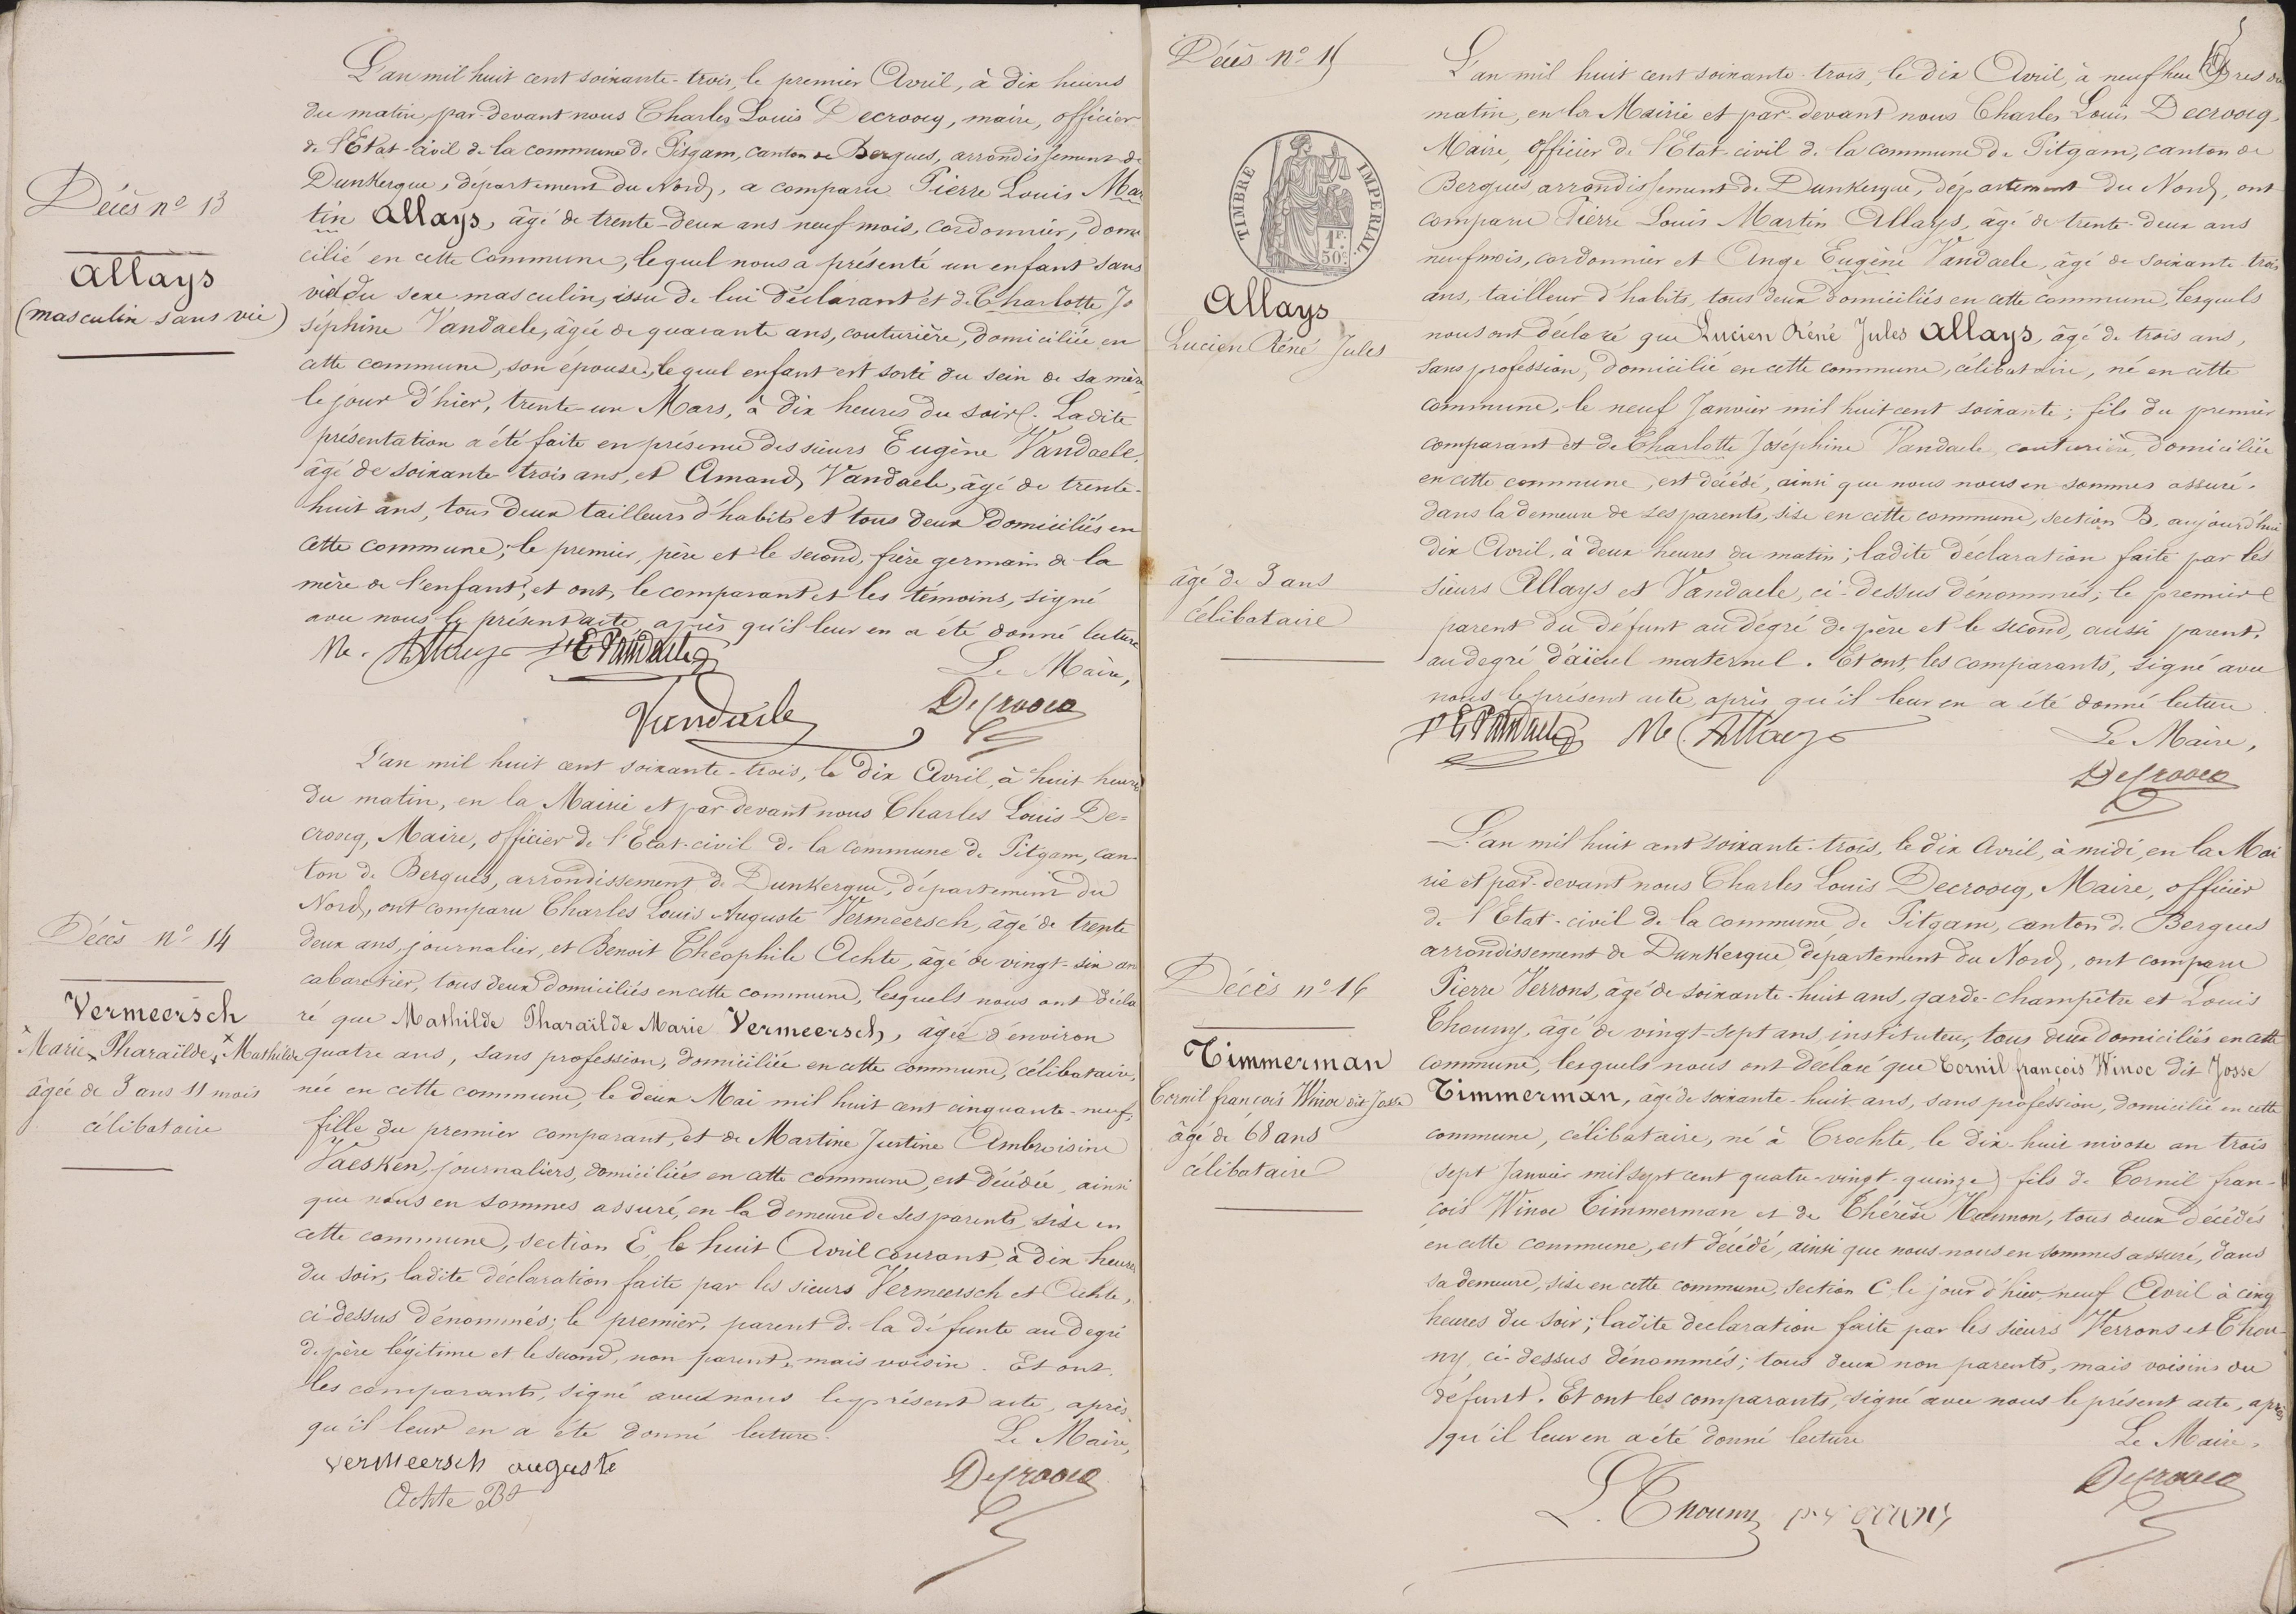 Décès nº 13
Allays
(masculin sans vie)
L'an mil huit cent soixante-trois, le premier Avril, à dix heures
du matin, par-devant nous Charles Louis Decroocq, maire, officier
de l'Etat-civil de la commune de Pitgam, canton de Bergues, arrondissement de
Dunkerque, département du Nord, a comparu Pierre Louis Mar
tin Allays, âgé de trente-deux ans neuf mois, cordonnier, domi
cilié en cette commune, lequel nous a présenté un enfant sans
vie du sexe masculin, issu de lui déclarant et de Charlotte Jo
séphine Vandaele, âgée de quarante ans, couturière, domiciliée en
cette commune, son épouse, lequel enfant est sorti du sein de sa mère
le jour d'hier, trente-un Mars, à dix heures du soir. Ladite
présentation a été faite en présence des sieurs Eugène Vandaele,
âgé de soixante-trois ans, et Amand Vandaele, âgé de trente-
huit ans, tous deux tailleurs d'habits et tous deux domiciliés en
cette commune; le premier, père et le second, frère germain de la
mère de l'enfant; et ont, le comparant et les témoins, signé
avec nous le présent acte, après qu'il leur en a été donné lecture
Le Maire,
Allays E Vandaele
Vandaele
Decroocq
Décès nº 14
Vermeersch
Marie Pharaïlde Mathilde
âgée de 3 ans 11 mois
célibataire
L'an mil huit cent soixante-trois, le dix Avril, à huit heures
du matin, en la Mairie et par devant nous Charles Louis De=
croocq, Maire, officier de l'Etat-civil de la commune de Pitgam, can-
ton de Bergues, arrondissement de Dunkerque, département du
Nord, ont comparu Charles Louis Auguste Vermeersch, âgé de trente
deux ans, journalier, et Benoit Théophile Achte, âgé de vingt-six an
cabaretier, tous deux domiciliés en cette commune, lesquels nous ont décla
ré que Mathilde Pharaïlde Marie Vermeersch, âgée d'environ
quatre ans, sans profession, domiciliée en cette commune, célibataire,
née en cette commune, le deux Mai mil huit cent cinquante-neuf,
fille du premier comparant, et de Martine Justine Ambroisine
Vaesken, journaliers, domiciliés en cette commune, est décédée, ainsi
que nous en sommes assuré, en la demeure de ses parents, sise en
cette commune, section E, le huit Avril courant, à dix heures
du soir, ladite déclaration faite par les sieurs Vermeersch et Achte,
ci-dessus dénommés; le premier, parent de la défunte au degré
de père légitime et le second, non parent, mais voisin. Et ont,
les comparants, signé avec nous le présent acte, après
qu'il leur en a été donné lecture.
Le Maire,
vermeersch auguste
Achte Bt
Decroocq
Décès nº 15
TIMBRE IMPERIAL
1F.
50C.
Allays
Lucien Réné Jules
âgé de 3 ans
célibataire
L'an mil huit cent soixante-trois, le dix Avril, à neuf heures du
matin, en la Mairie et par-devant nous Charles Louis Decroocq,
Maire, officier de l'Etat-civil de la commune de Pitgam, canton de
Bergues arrondissement de Dunkerque, département du Nord, ont
comparu Pierre Louis Martin Allays, âgé de trente-deux ans
neuf mois, cordonnier et Ange Eugène Vandaele, âgé de soixante-trois
ans, tailleur d'habits, tous deux domiciliés en cette commune, lesquels
nous ont déclaré que Lucien Réné Jules Allays, âgé de trois ans,
sans profession, domicilié en cette commune, célibataire, né en cette
commune, le neuf Janvier mil huit cent soixante; fils du premier
comparant et de Charlotte Joséphine Vandaele, couturière, domiciliée
en cette commune, est décédé, ainsi que nous nous en sommes assuré,
dans la demeure de ses parents, sise en cette commune, section B, aujourd'hui
dix Avril, à deux heures du matin; ladite déclaration faite par les
sieurs Allays et Vandaele, ci-dessus dénommés; le premier
parent du défunt au dégré de père et le second, aussi parent,
au degré d'aïeul maternel. Et ont, les comparants, signé avec
nous le présent acte, après qu'il leur en a été donné lecture
Le Maire,
E Vandaele Allays
Decroocq
Décès nº 16
Timmerman
Cornil françois Winoc dit Josse
âgé de 68 ans
célibataire
L'an mil huit cent soixante-trois, le dix Avril, à midi, en la Mai
rie et par-devant nous Charles Louis Decroocq, Maire, officier
de l'Etat-civil de la commune de Pitgam, canton de Bergues
arrondissement de Dunkerque département du Nord, ont comparu
Pierre Verrons, âgé de soixante-huit ans, garde-champêtre et Louis
Thouny, âgé de vingt-sept ans, instituteur, tous deux domiciliés en cette
commune, lesquels nous ont déclaré que Cornil françois Winoc dit Josse
Timmerman, âgé de soixante-huit ans, sans profession, domicilié en cette
commune, célibataire, né à Crochte, le dix-huit nivose an trois
(sept Janvier mil sept cent quatre-vingt-quinze) fils de Cornil fran-
çois Winoc Timmerman et de Thérèse, tous deux décédés
en cette commune, est décédé, ainsi que nous nous en sommes assuré, dans
sa demeure, sise en cette commune, section C, le jour d'hier neuf Avril à cinq
heures du soir; ladite déclaration faite par les sieurs Verrons et Thou-
ny, ci-dessus dénommés; tous deux non parents, mais voisins du
défunt. Et ont les comparants, signé avec nous le présent acte, après
qu'il leur en a été donné lecture
Le Maire,
L. Thouny
Decroocq